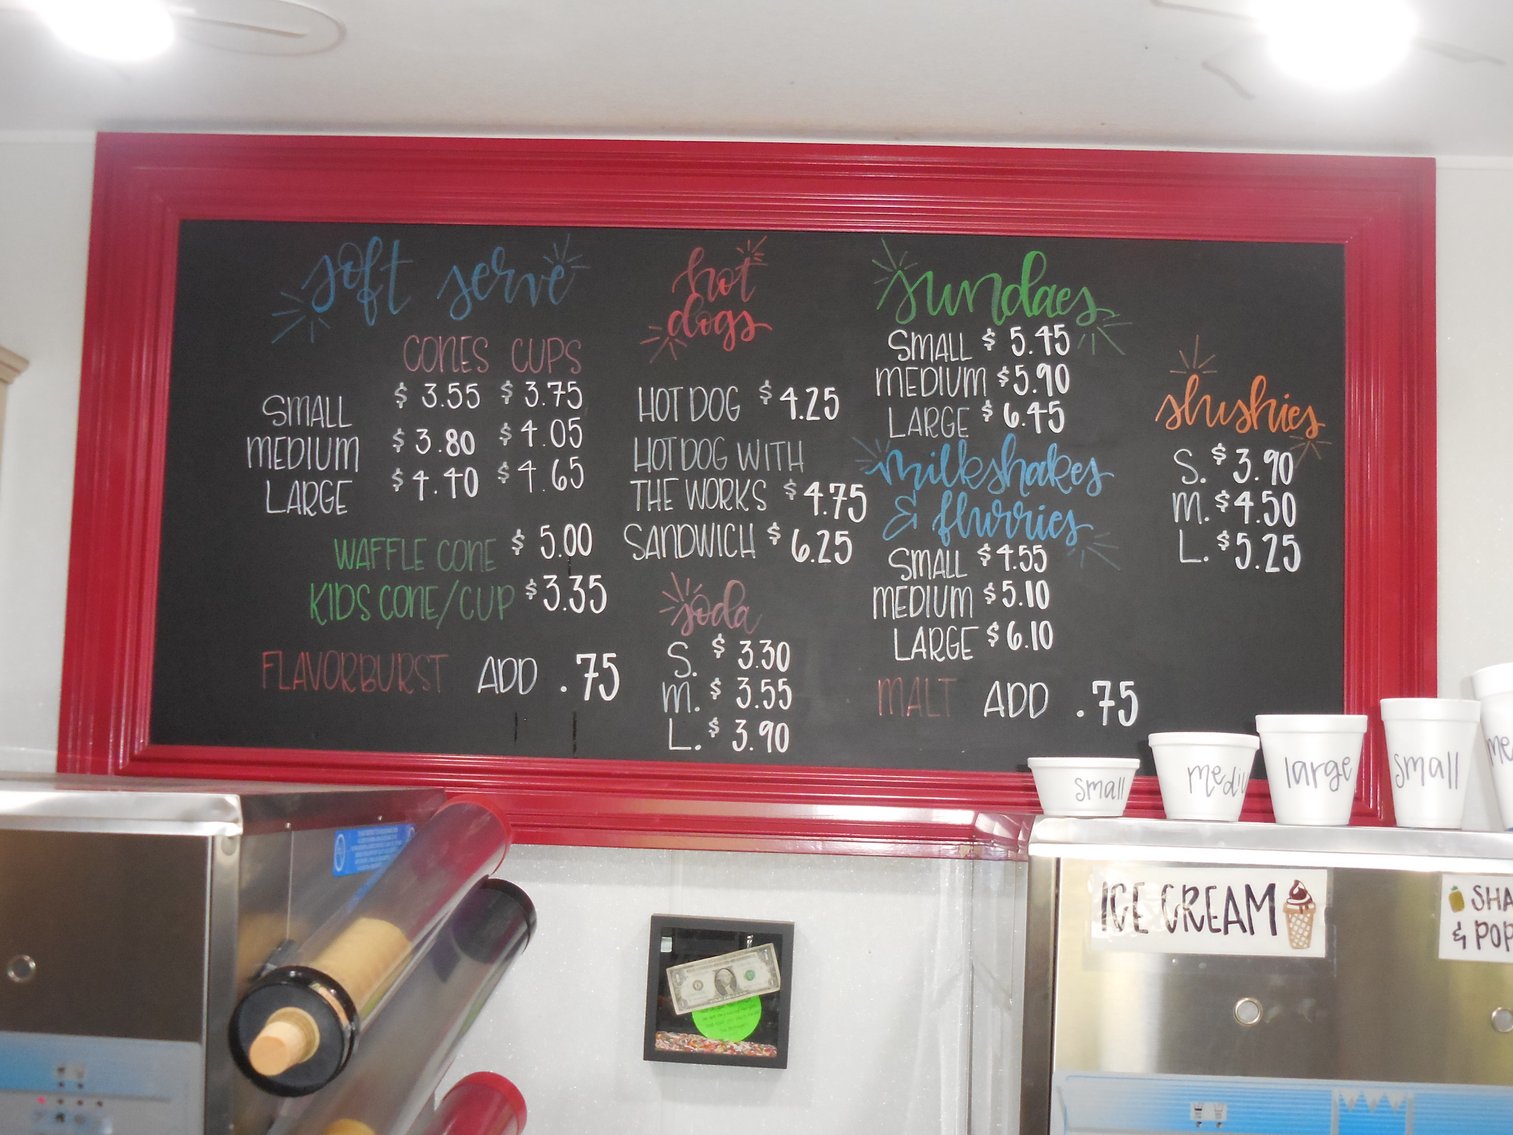 soft serve
CONES CUPS
SMALL $3.55 $3.75
MEDIUM $3.80 $4.05
LARGE $4.40 $4.65
WAFFLE CONE $5.00
KIDS CONE/CUP $3.35
FLAVORBURST ADD .75
hot
dogs
HOT DOG $4.25
HOT DOG WITH
THE WORKS $4.75
SANDWICH $6.25
soda
S. $3.30
M. $3.55
L. $3.90
sundaes
SMALL $5.45
MEDIUM $5.90
LARGE $6.45
milkshakes
& flurries
SMALL $4.55
MEDIUM $5.10
LARGE $6.10
MALT ADD .75
slushies
S. $3.90
M. $4.50
L. $5.25
small
mediu
large
small
me
ICE CREAM
SHA
& POP